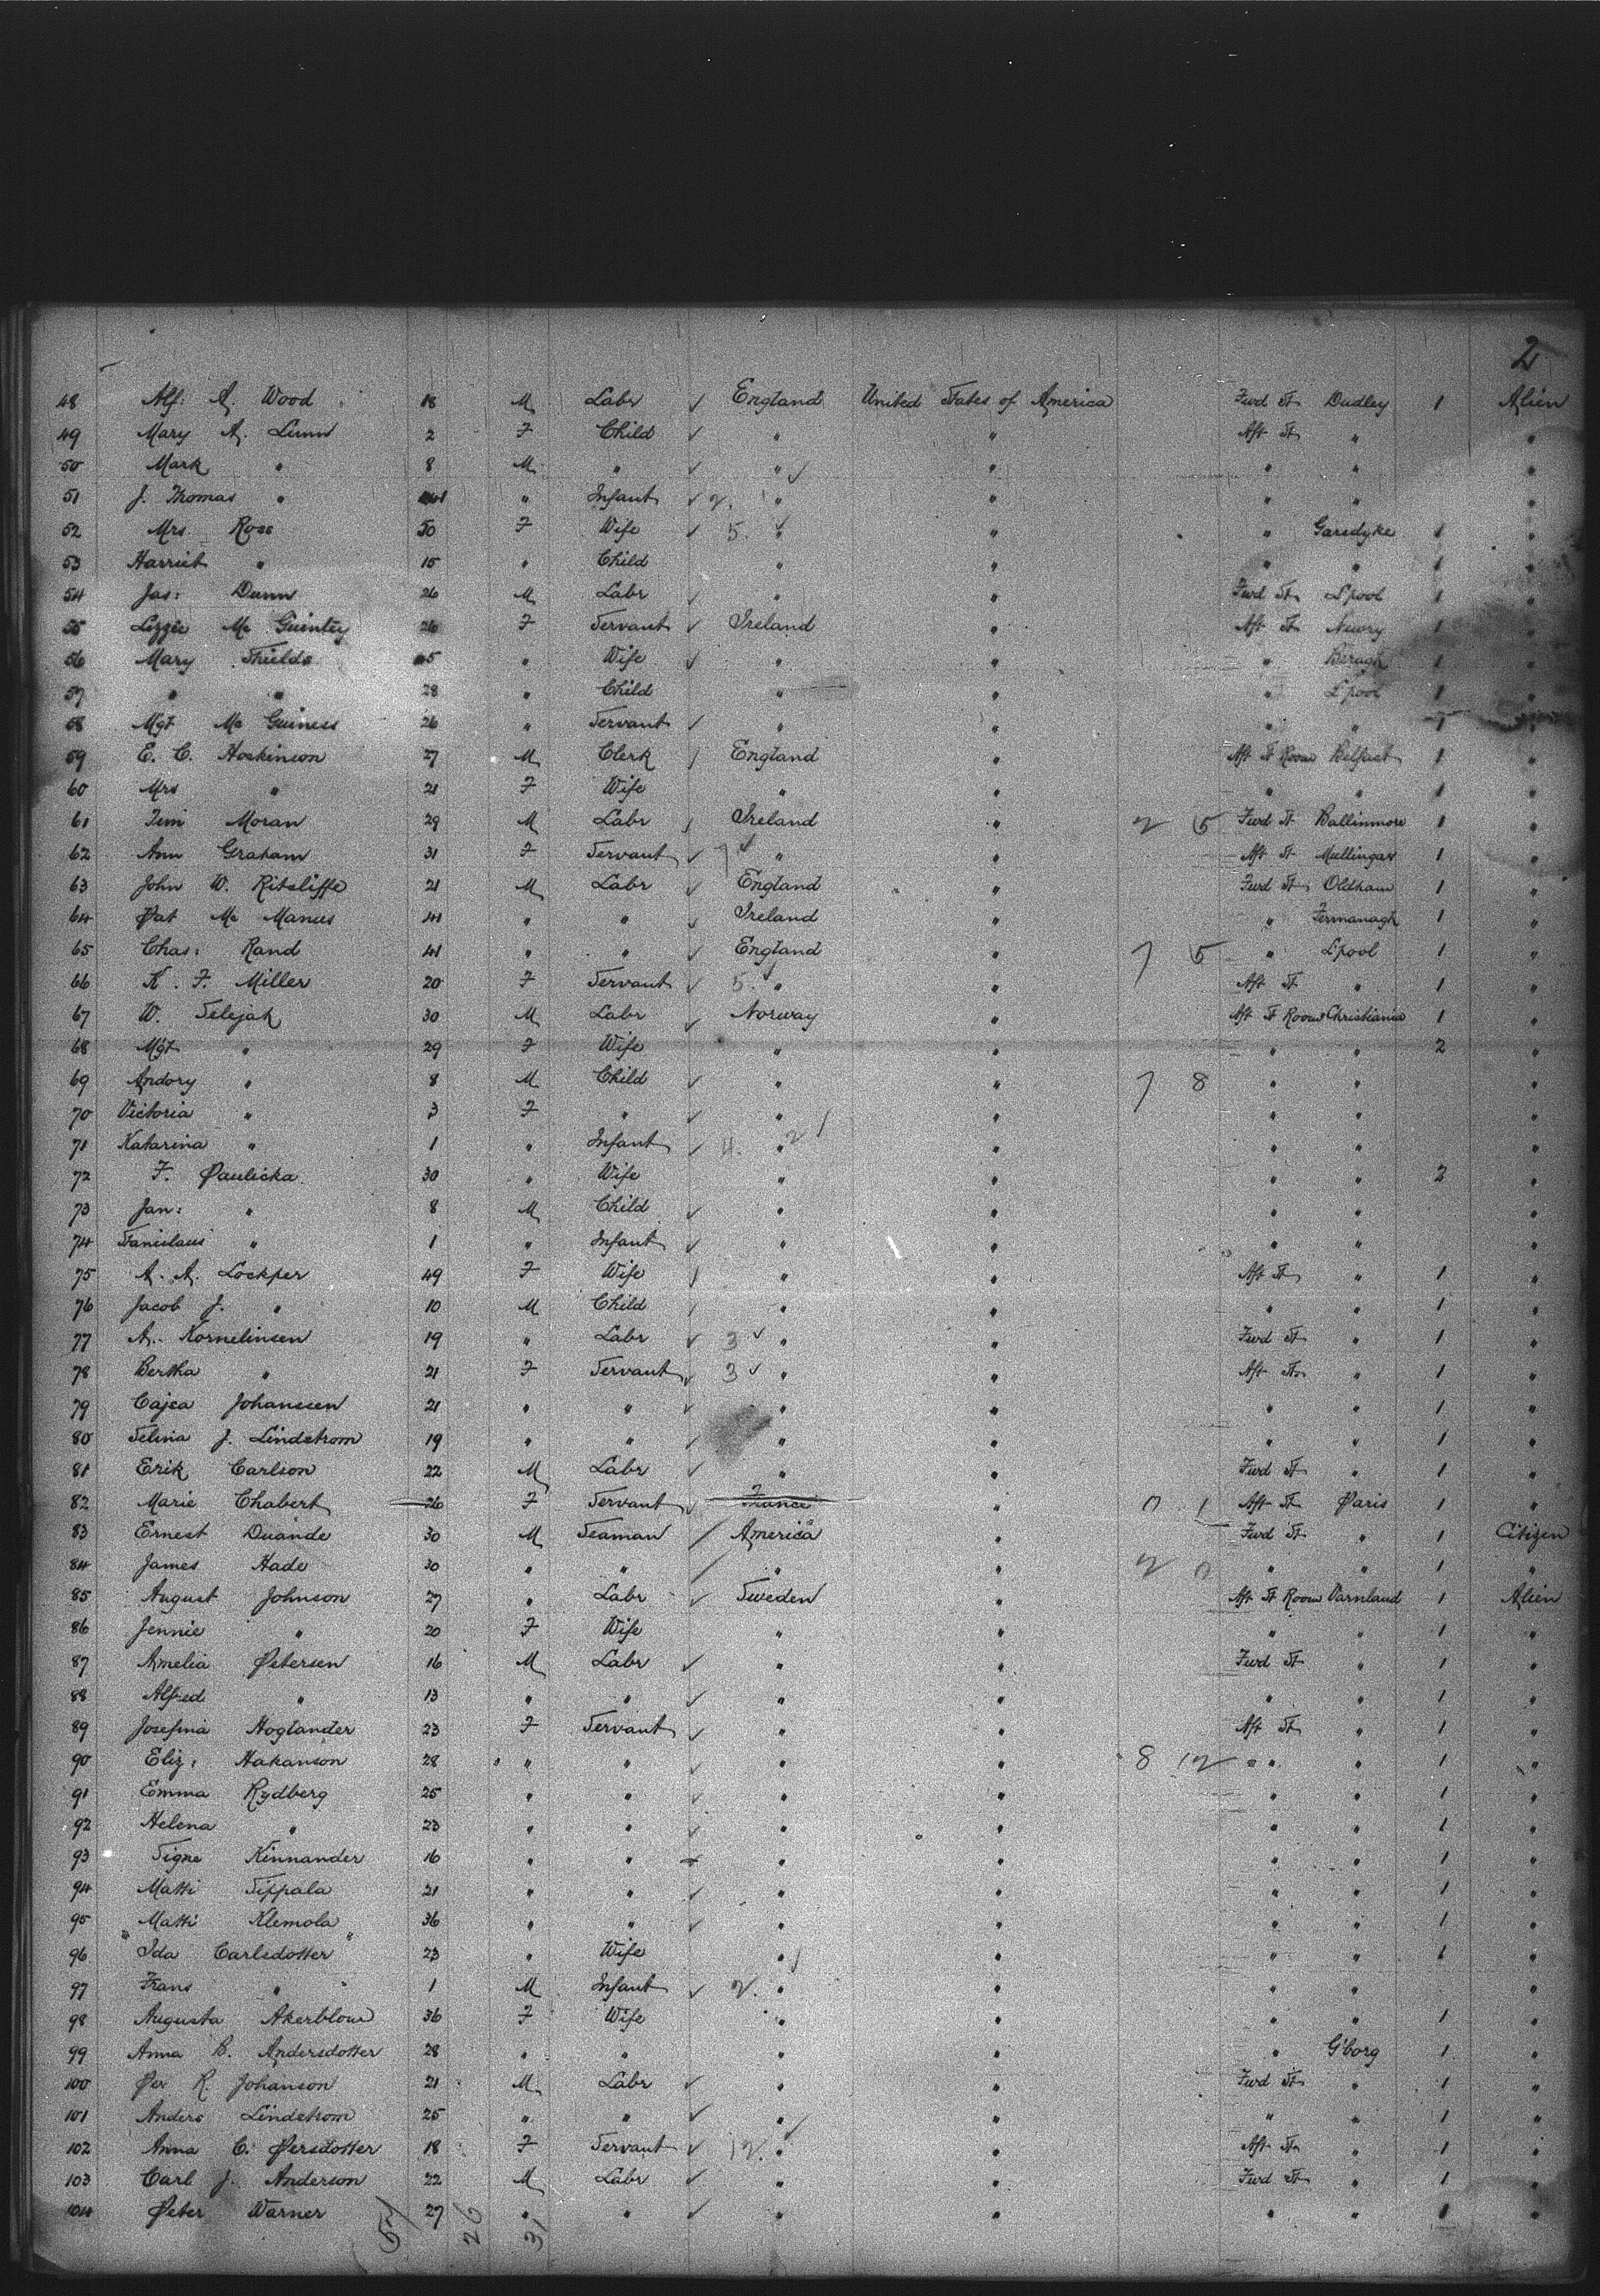 2
48 Alf. A. Wood 18 M Labr England United States of America Fwd St Dudley 1 Alien
49 Mary A. Lunn 2 F Child " " Aft St " "
50 Mark " 8 M " " " " " "
51 J. Thomas " 1 " Infant 2. " " " " "
52 Mrs. Ross 50 F Wife 5. " " " Garsdyke 1 "
53 Harriet " 15 " Child " " " " 1 "
54 Jas: Dunn 26 M Labr " " Fwd St L'pool 1 "
55 Lizzie Mc Guintey 26 F Servant Ireland " Aft St Newry 1 "
56 Mary Shields 5 " Wife " " " Beragh 1 "
57 " " 28 " Child " " " L'pool 1 "
58 Mgt Mc Guiness 26 " Servant " " " " 1 "
59 E. C. Hoskinson 27 M Clerk England " Aft St Room Belfast 1 "
60 Mrs " 21 F Wife " " " " 1 "
61 Jim Moran 29 M Labr Ireland " 2 5 Fwd St Ballinmore 1 "
62 Ann Graham 31 F Servant 7 " " Aft St Mullingar 1 "
63 John W. Ritsliffe 21 M Labr England " Fwd St Oldham 1 "
64 Pat Mc Manus 41 " " Ireland " " Fermanagh 1 "
65 Chas: Rand 41 " " England " 7 5 " L'pool 1 "
66 K. F. Miller 20 F Servant 5. " " Aft St " 1 "
67 W. Selejah 30 M Labr Norway " Aft St Room Christiania 1 "
68 Mgt " 29 F Wife " " " " 2 "
69 Andory " 8 M Child " " 7 8 " " "
70 Victoria " 3 F " " " " " "
71 Katarina " 1 " Infant 4. " 2 " " " "
72 F. Paulicka 30 " Wife " " " " 2 "
73 Jan: " 8 M Child " " " " "
74 Stanislaus " 1 " Infant " " " " "
75 A. A. Lockper 49 F Wife " " Aft St " 1 "
76 Jacob J. " 10 M Child " " " " 1 "
77 A. Kornelinsen 19 " Labr 3 " " Fwd St " 1 "
78 Bertha " 21 F Servant 3 " " Aft St " 1 "
79 Cajsa Johanssen 21 " " " " " " 1 "
80 Selma J. Lindstrom 19 " " " " " " 1 "
81 Erik Carlson 22 M Labr " " Fwd St " 1 "
82 Marie Chabert 26 F Servant France " 0 1 Aft St Paris 1 "
83 Ernest Duande 30 M Seaman America " Fwd St " 1 Citizen
84 James Hade 30 " " " " 2 0 " " 1 "
85 August Johnson 27 " Labr Sweden " Aft St Room Varnland 1 Alien
86 Jennie " 20 F Wife " " " " 1 "
87 Amelia Petersen 16 M Labr " " Fwd St " 1 "
88 Alfred " 13 " " " " " " 1 "
89 Josefina Hoglander 23 F Servant " " Aft St " 1 "
90 Eliz: Hakanson 28 " " " " 8 12 " " 1 "
91 Emma Rydberg 25 " " " " " " 1 "
92 Helena " 23 " " " " " " 1 "
93 Signe Kinnander 16 " " " " " " 1 "
94 Matti Sippala 21 " " " " " " 1 "
95 Matti Klemola 36 " " " " " " 1 "
96 "Ida Carlsdotter" 23 " Wife " " " " 1 "
97 Frans " 1 M Infant 2. " " " " "
98 Augusta Akerblom 36 F Wife " " " " 1 "
99 Anna B. Andersdotter 28 " " " " " G'borg 1 "
100 Per R. Johanson 21 M Labr " " Fwd St " 1 "
101 Anders Lindstrom 25 " " " " " " 1 "
102 Anna C. Persdotter 18 F Servant 12. " " Aft St " 1 "
103 Carl J. Anderson 22 M Labr " " Fwd St " 1 "
104 Peter Warner 27 " " " " " " 1 "
57 26 31